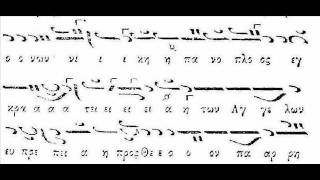 ο ο νων νι ι ι κη η πα νο πλος εγ
κρα α α α τει ει ει ει α η των Αγ γε λων
ευ πρε πει α η προς Θε ε ο ο ον πα αρ ρη